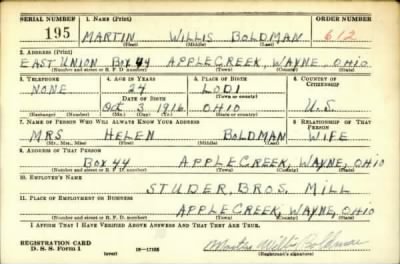 SERIAL NUMBER 1. NAME (Print) ORDER NUMBER
195 MARTIN WILLIS BOLDMAN 612
(First) (Middle) (Last)
2. ADDRESS (Print)
EAST UNION BOX 44 APPLECREEK, WAYNE, OHIO
(Number and street or R. F. D. number) (Town) (County) (State)
3. TELEPHONE 4. AGE IN YEARS 5. PLACE OF BIRTH 6. COUNTRY OF CITIZENSHIP
NONE 24 LODI
DATE OF BIRTH (Town or county)
OCT 3 1916 OHIO U.S
(Exchange) (Number) (Mo.) (Day) (Yr.) (State or country)
7. NAME OF PERSON WHO WILL ALWAYS KNOW YOUR ADDRESS 8. RELATIONSHIP OF THAT PERSON
MRS HELEN BOLDMAN WIFE
(Mr., Mrs., Miss) (First) (Middle) (Last)
9. ADDRESS OF THAT PERSON
BOX 44 APPLECREEK, WAYNE, OHIO
(Number and street or R. F. D. number) (Town) (County) (State)
10. EMPLOYER'S NAME
STUDER, BROS. MILL
11. PLACE OF EMPLOYMENT OR BUSINESS
APPLECREEK, WAYNE, OHIO
(Number and street or R. F. D. number) (Town) (County) (State)
I AFFIRM THAT I HAVE VERIFIED ABOVE ANSWERS AND THAT THEY ARE TRUE.
REGISTRATION CARD
D. S. S. FORM 1 (over) 16-17105 Martin Willis Boldman
(Registrant's signature)